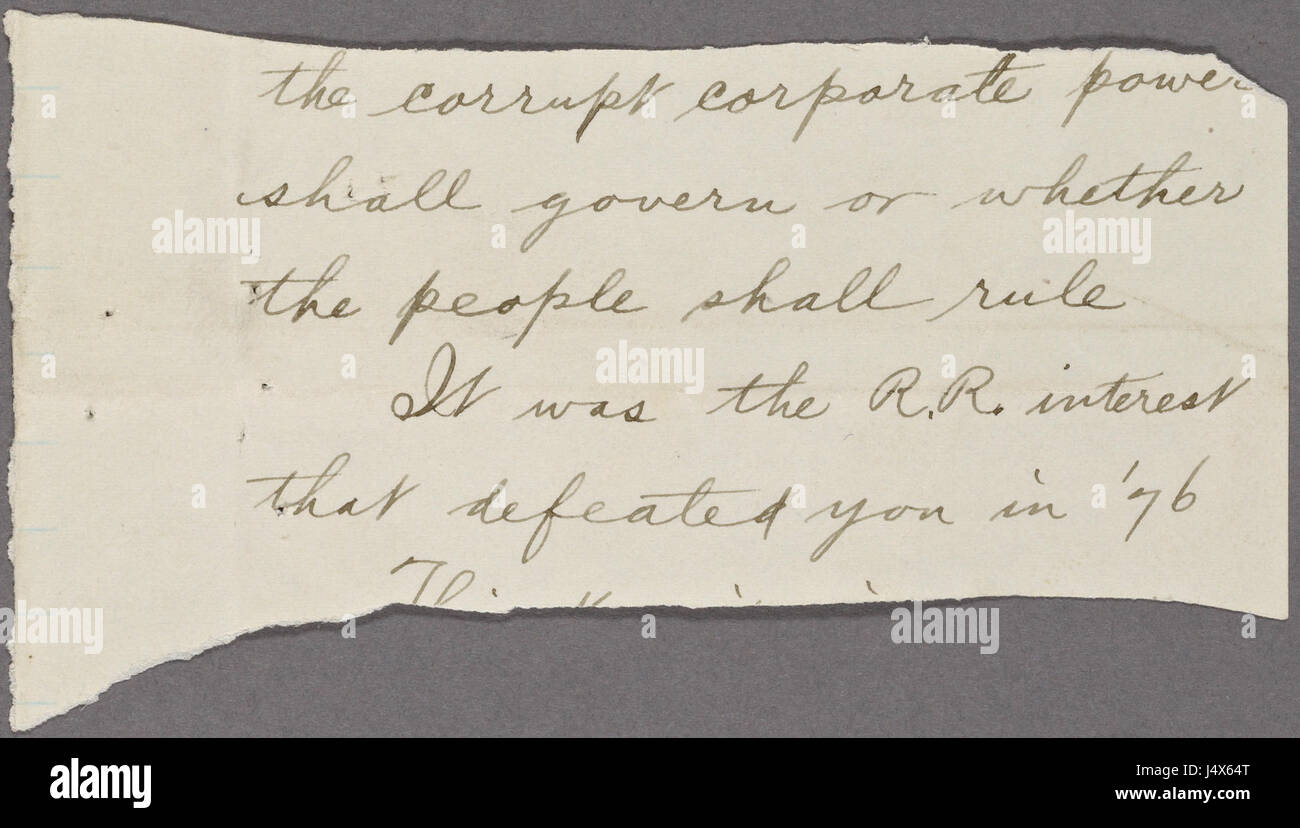 the corrupt corporate power
shall govern or whether
the people shall rule
It was the R.R. interest
that defeated you in '76
alamy stock photo
J4X64T
www.alamy.com